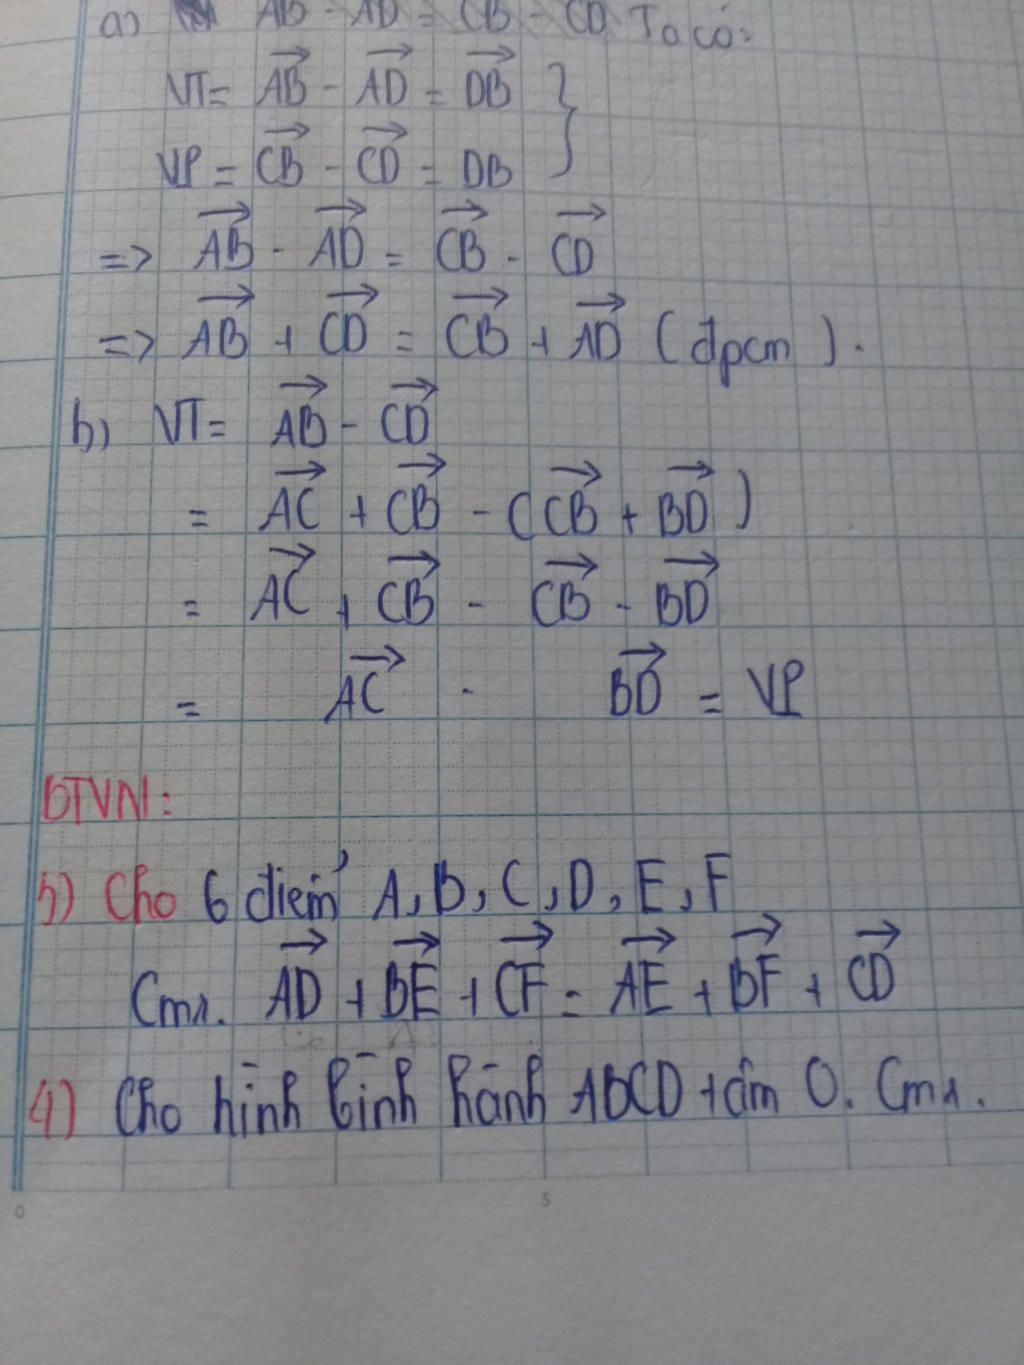 a) AB - AD = CB - CD Ta có:
VT = AB - AD = DB
VP = CB - CD = DB
=> AB - AD = CB - CD
=> AB + CD = CB + AD (đpcm).
b) VT = AB - CD
= AC + CB - (CB + BD)
= AC + CB - CB - BD
= AC - BD = VP
BTVN:
3) Cho 6 điểm A, B, C, D, E, F
Cmr. AD + BE + CF = AE + BF + CD
4) Cho hình bình hành ABCD tâm O. Cmr.
0
5